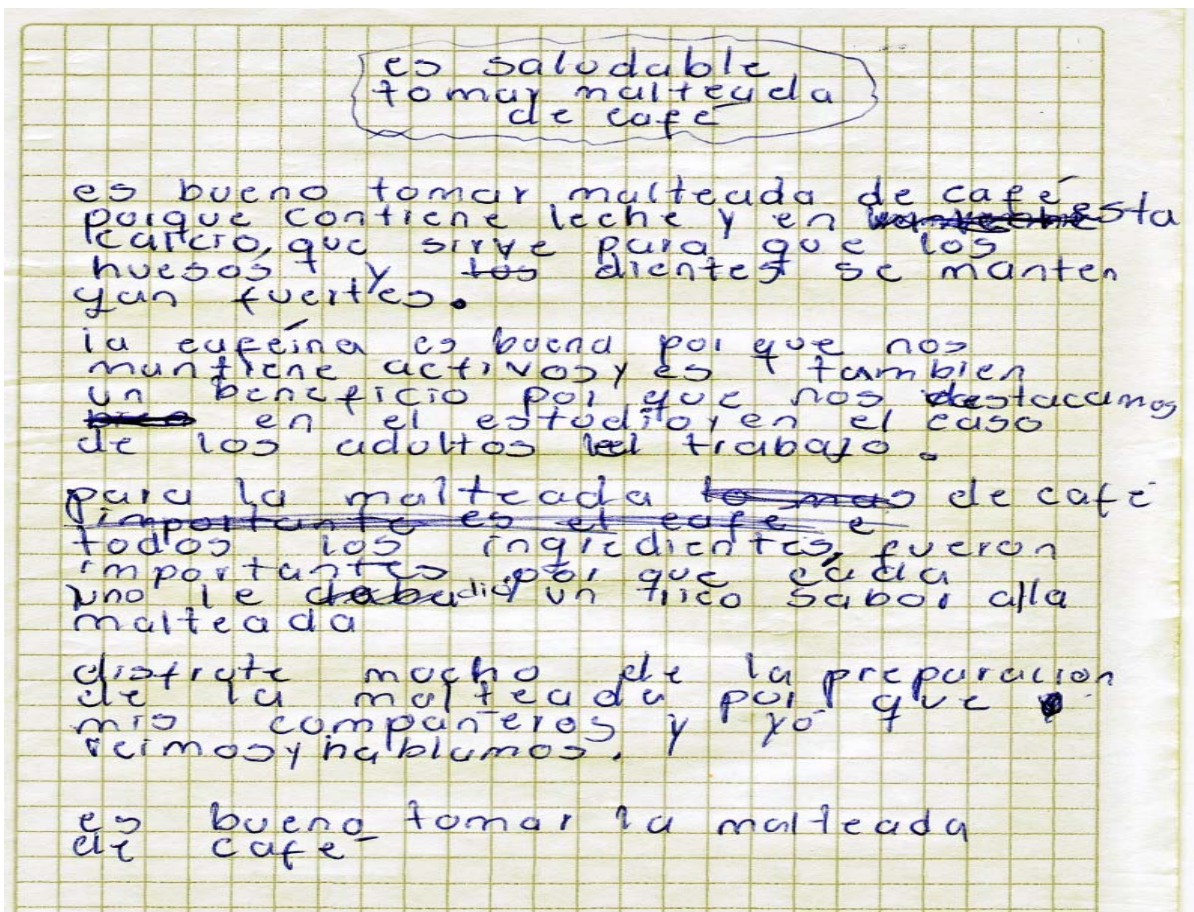 es saludable
tomar malteada
de café
es bueno tomar malteada de café
porque contiene leche y en esta
calcio, que sirve para que los
huesos y dientes se manten
gan fuertes.
la cafeína es buena por que nos
mantiene activos y es tambien
un beneficio por que nos destacamos
en el estudio, en el caso
de los adultos el trabajo.
para la malteada de café
todos los ingredientes, fueron
importantes por que cada
uno le dio un rico sabor alla
malteada
disfrute mucho de la preparacion
de la malteada por que
mis compañeros y yo
reimos y hablamos.
es bueno tomar la malteada
de cafe